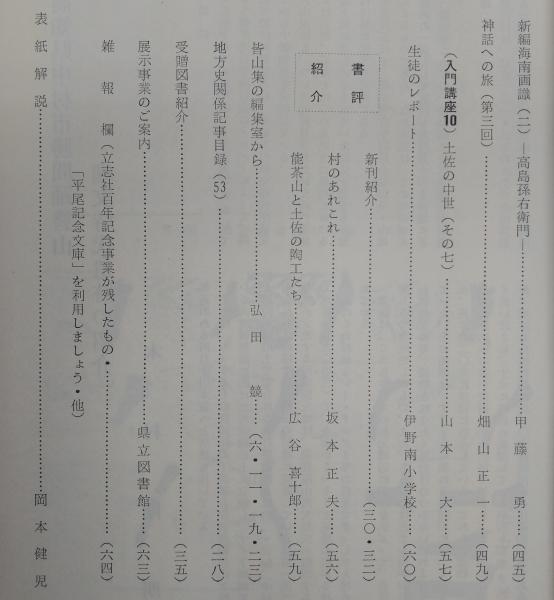 新編海南画識（二）―高島孫右衛門―……………甲藤　勇……（四五）
神話への旅（第三回）……………畑山正一……（四九）
（入門講座10）土佐の中世（その七）……………山本　大……（五七）
生徒のレポート……………伊野南小学校……（六〇）
書評
紹介
新刊紹介……………（三〇・三二）
村のあれこれ……………坂本正夫……（五六）
能茶山と土佐の陶工たち……………広谷喜十郎……（五九）
皆山集の編集室から……………弘田　競……（六・一一・一九・二三）
地方史関係記事目録（53）……………（二八）
受贈図書紹介……………（三五）
展示事業のご案内……………県立図書館……（六三）
雑報欄（立志社百年記念事業が残したもの・……………（六四）
「平尾記念文庫」を利用しましょう・他）
表紙解説……………岡本健児